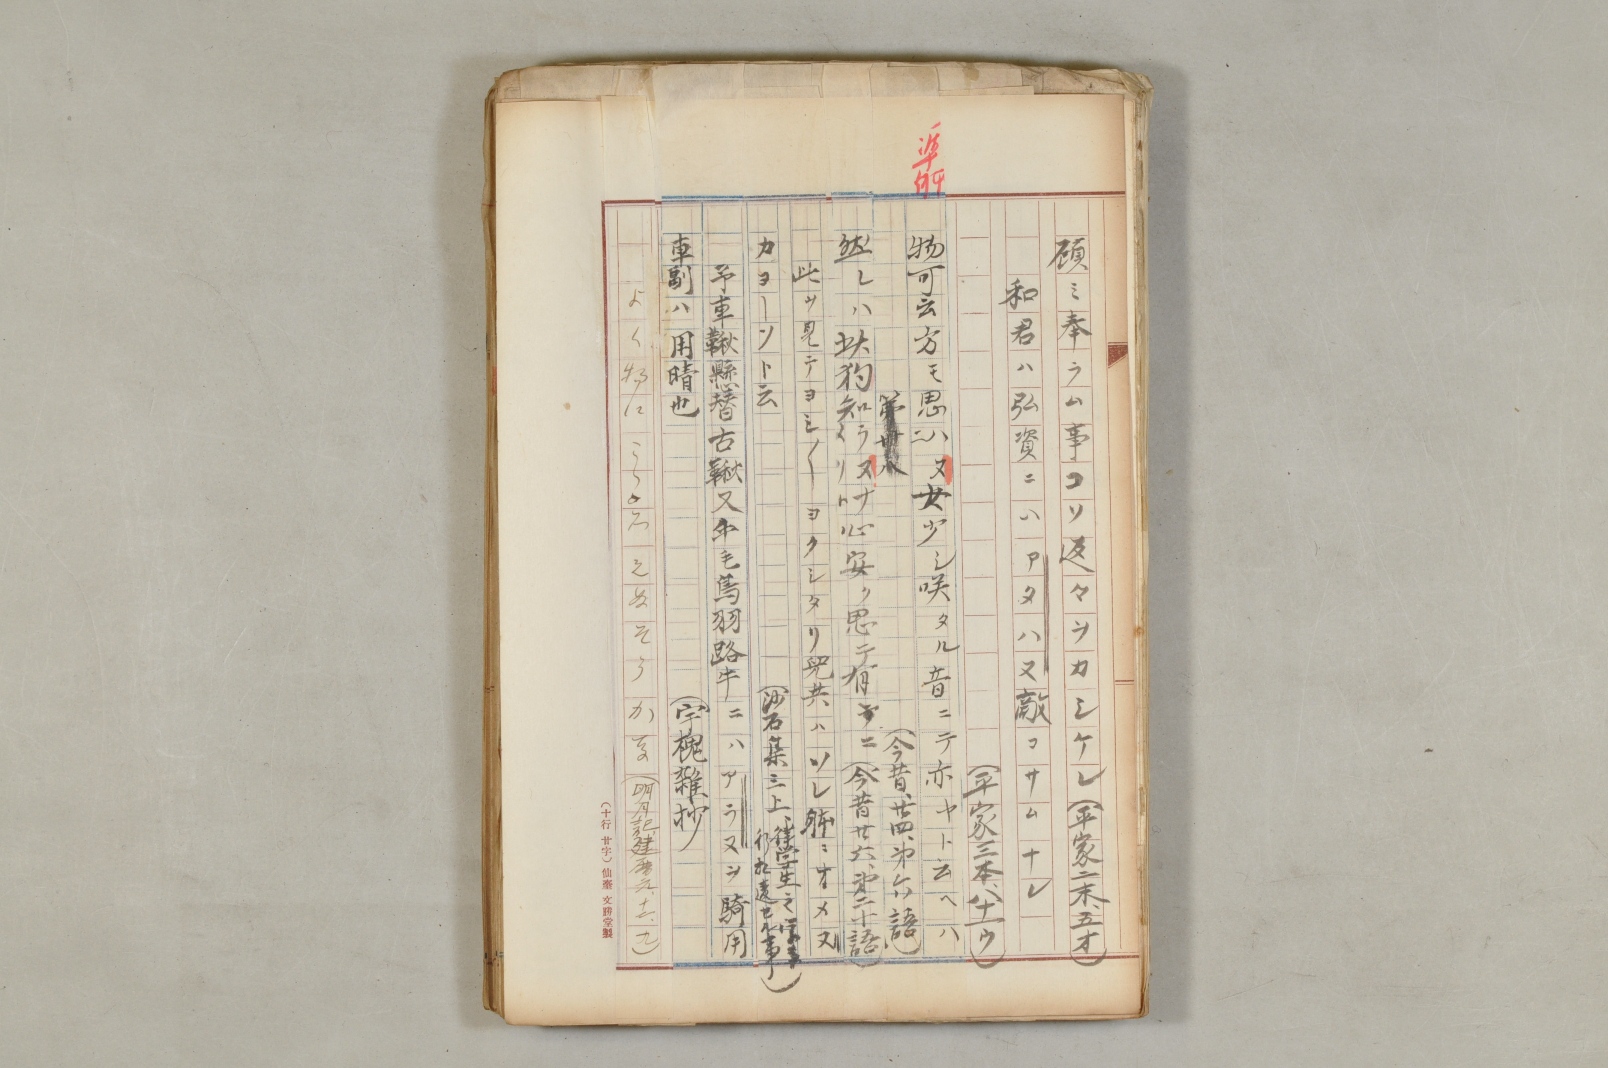 準所
顧ミ奉ラム事コソ返々ヲカシケレ(平家二末、五オ)
和君ハ弘資ニハアタハヌ敵コサムナレ
(平家三本、八十一ウ)
物可云方モ思ハヌニ女少シ咲タル音ニテ亦ヤト云ヘハ
(今昔、廿四、第六語)
然レハ此狗知ラヌナリケリ心安ク思テ有ルニ(今昔廿六、第二十語)
此ヲ見テヨミ〳〵ヨクシタリ兒共ハソレ躰ニオメヌ
カヨーソト云(沙石集三上、
予車鞦懸替古鞦又牛毛馬羽路牛ニハアラヌヲ騎用
車副ハ用晴也(宇槐雑抄
よく物にこゝろえぬそうかな(明月記建暦元、十二、九)
(十行 廿字)仙臺 文勝堂製